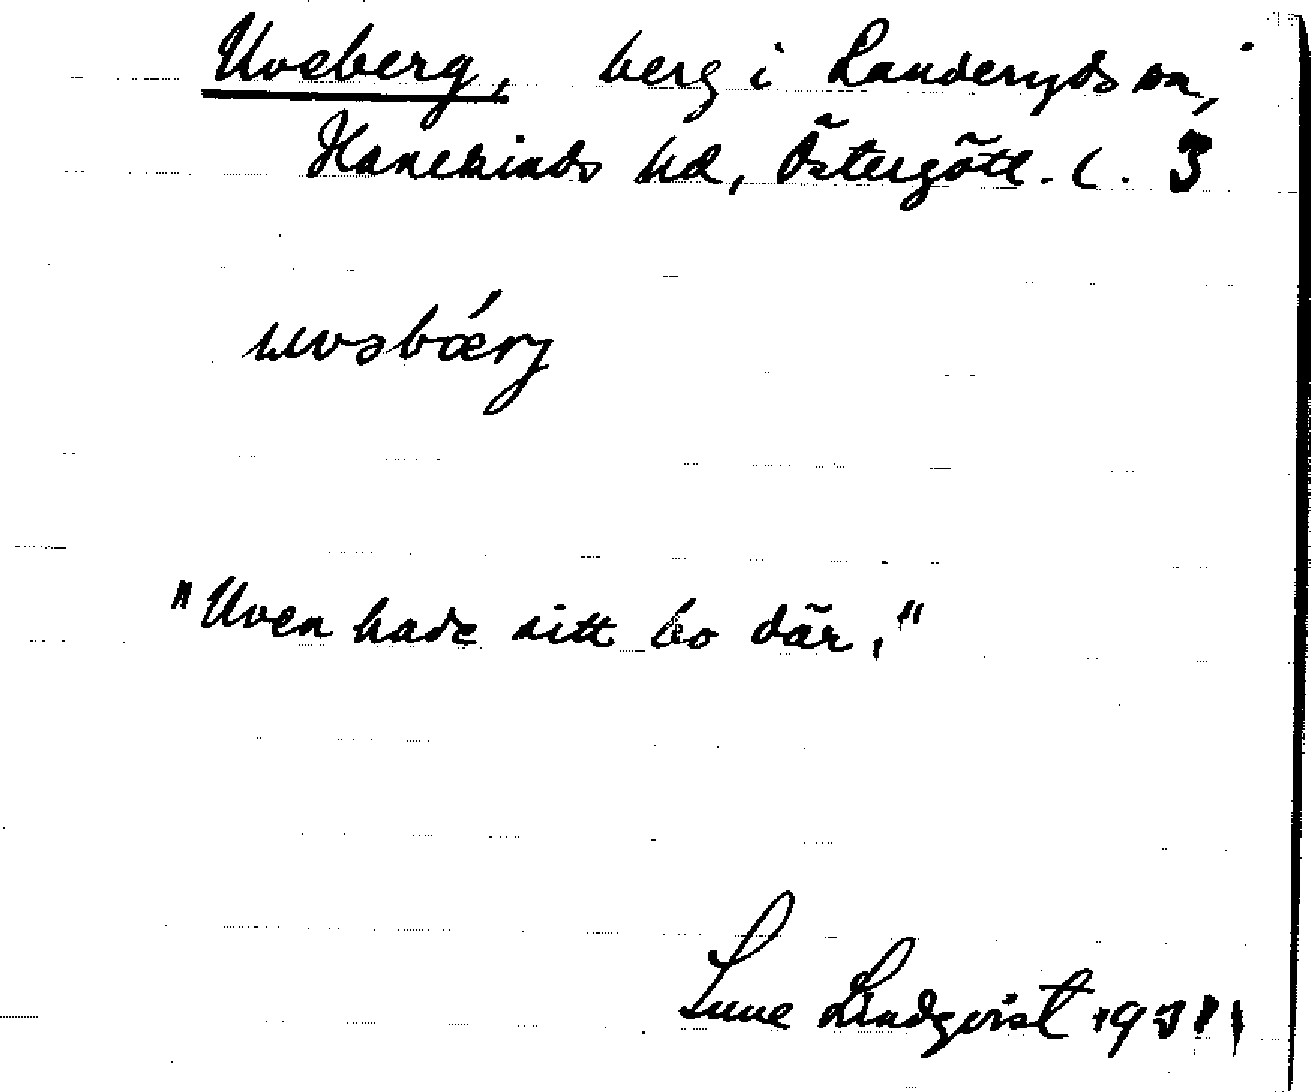 Uvsberg, berg i Landeryds sn,
Hanekinds hd, Östergötl. l. 3
uvsbærj
"Uven hade sitt bo där."
Sune Lindqvist